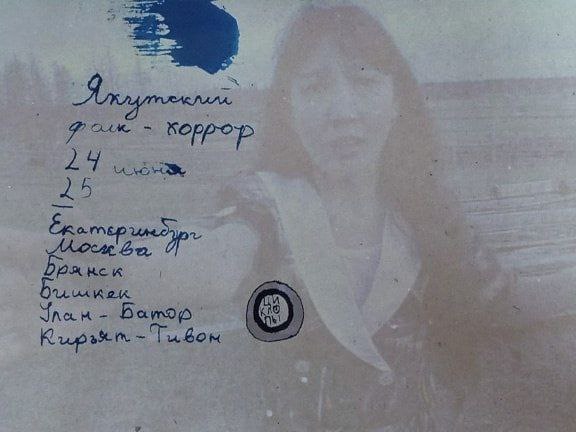 Якутский
фолк - хоррор
24 июня
25
Екатеринбург
Москва
Брянск
Бишкек
Улан - Батор
Кирьят - Тивон
ЦИ
КЛО
ПЫ